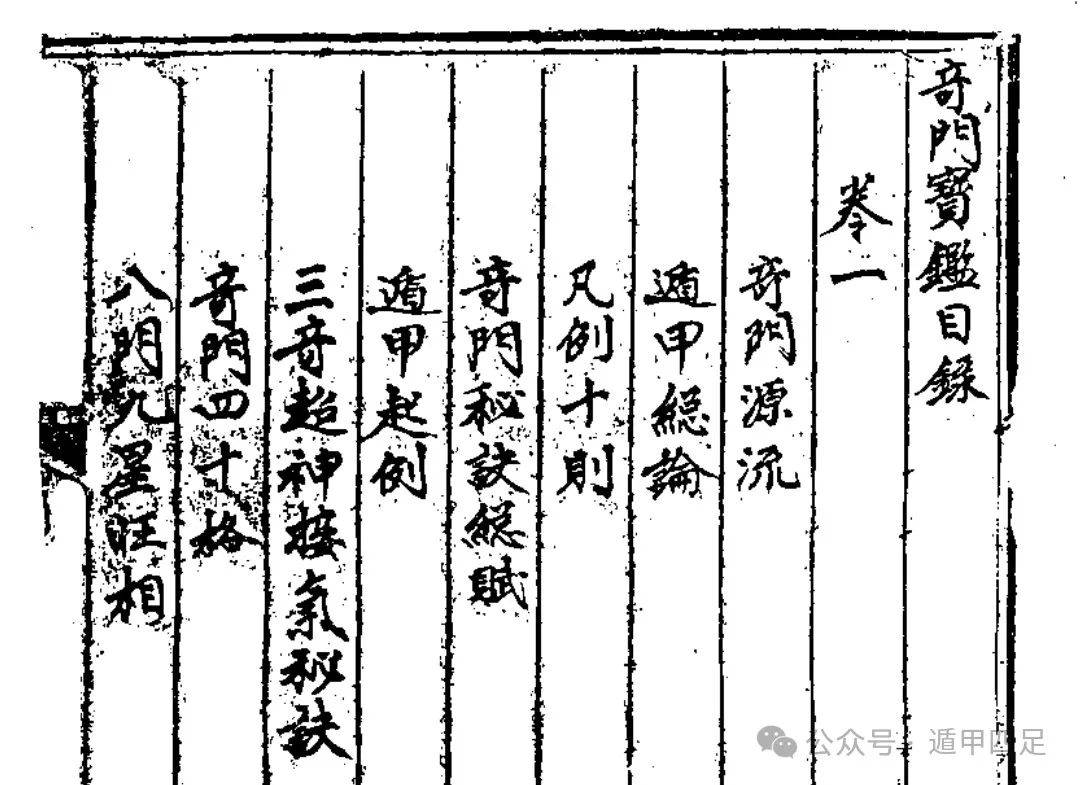 奇門寶鑑目錄
卷一
奇門源流
遁甲總論
凡例十則
奇門秘訣總賦
遁甲起例
三奇超神接氣秘訣
奇門四十格
八門九星旺相
公众号·遁甲四足